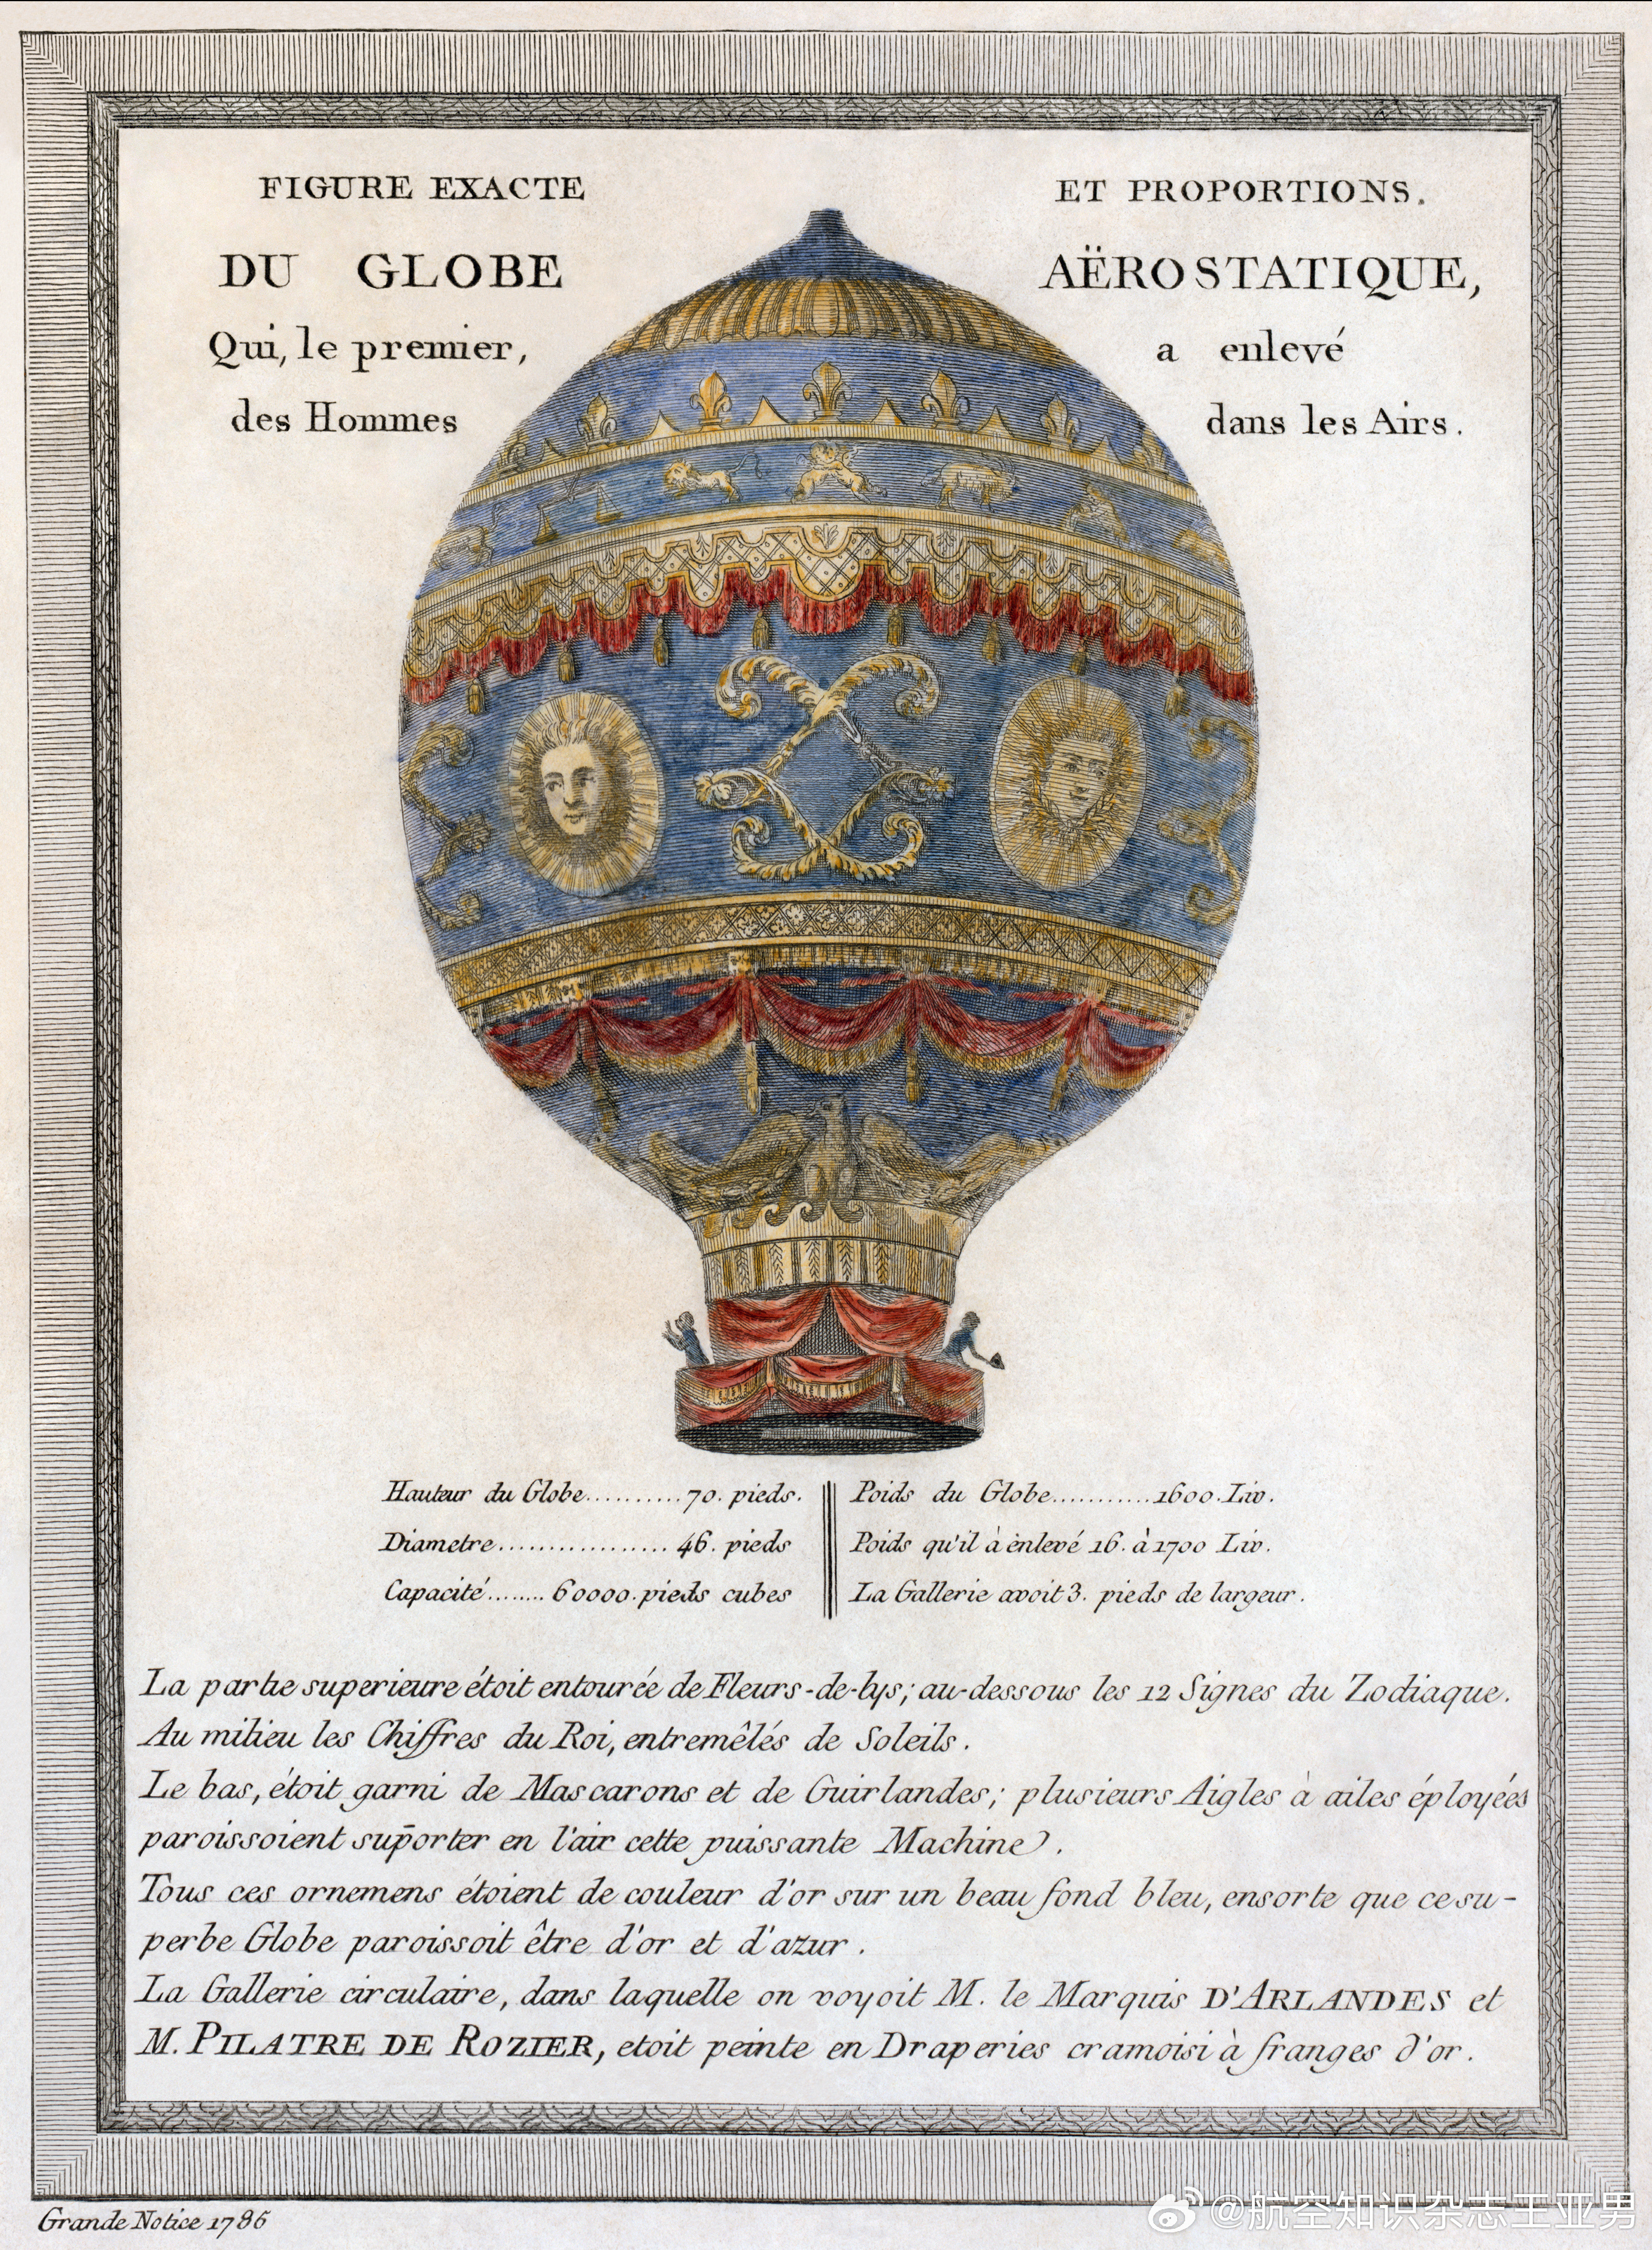 FIGURE EXACTE ET PROPORTIONS.
DU GLOBE AËROSTATIQUE,
Qui, le premier, a enlevé
des Hommes dans les Airs.
Hauteur du Globe..........70. pieds.
Diametre................. 46. pieds
Capacité........ 60000. pieds cubes
Poids du Globe...........1600. Liv.
Poids qu'il à enlevé 16. à 1700 Liv.
La Gallerie avoit 3. pieds de largeur.
La partie superieure étoit entourée de Fleurs-de-lys; au-dessous les 12 Signes du Zodiaque.
Au milieu les Chiffres du Roi, entremêlés de Soleils.
Le bas, étoit garni de Mascarons et de Guirlandes; plusieurs Aigles à ailes éployées
paroissoient suporter en l'air cette puissante Machine.
Tous ces ornemens étoient de couleur d'or sur un beau fond bleu, ensorte que ce su-
perbe Globe paroissoit être d'or et d'azur.
La Gallerie circulaire, dans laquelle on voyoit M. le Marquis D'ARLANDES et
M. PILATRE DE ROZIER, etoit peinte en Draperies cramoisi à franges d'or.
Grande Notice 1786
@航空知识杂志王亚男